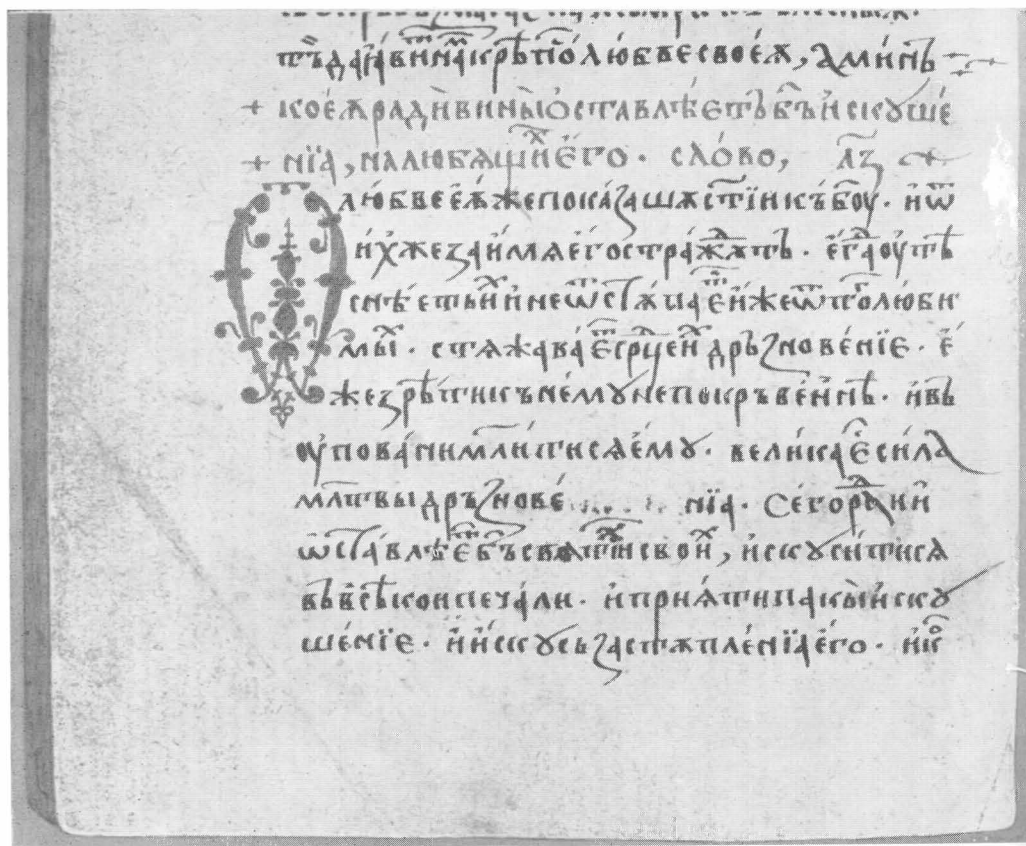 тъ да н҄авинт҄ма крѣпо любве своеѧ, аминь
+ коеѧ ради вины оставлѣетъ бъ искꙋше
+ нїа, на любѧщиⷯ его · слово, лз
любве еѧже показашѫ ст҃їи къ боу · и ѿ
ихже за имѧ его стражѫⷮ · егⷣа оутѣ
снѣеть иⷯ и не ѿстѫпаеⷮ иже ѿ по любы
мыⷯ · стѧжаваеⷮ срⷣце иⷯ дръзновенїе · е
же зрѣти къ немꙋ непокръвеннѣ · и вь
оупованы млити сѧ емꙋ · велика е сила
млтвы дръзновенїа · Сего раⷣ и
ѡставлѣеⷮ бъ свѧтыⷯ своиⷯ, искꙋсити сѧ
въ всѣкои печали · и прїѧти пакы искꙋ
шенїе · и искꙋсь застѫпленїа его · и ко